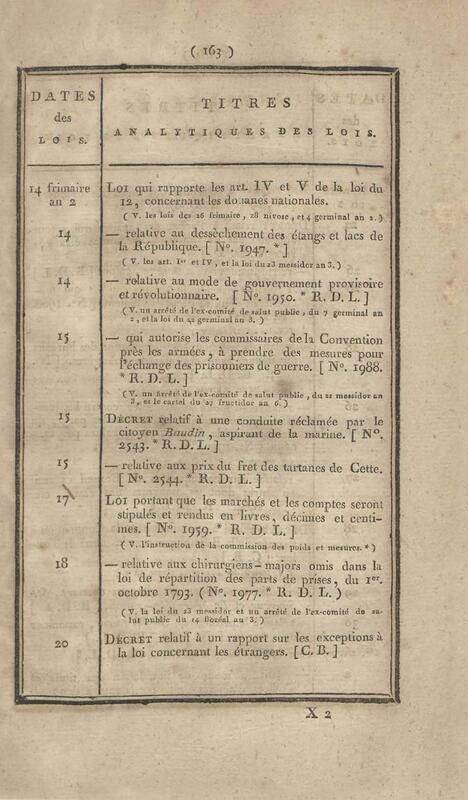 ( 163 )
DATES
des
LOIS.
TITRES
ANALYTIQUES DES LOIS.
14 frimaire
an 2
LOI qui rapporte les art. IV et V de la loi du
12, concernant les douanes nationales.
( V. les lois des 26 frimaire, 28 nivose, et 4 germinal an 2. )
14
— relative au dessèchement des étangs et lacs de
la République. [ Nº. 1947. * ]
( V. les art. Ier et IV, et la loi du 23 messidor an 3. )
14
— relative au mode de gouvernement provisoire
et révolutionnaire. [ Nº. 1950. * R. D. L. ]
( V. un arrêté de l'ex-comité de salut public, du 7 germinal an
2, et la loi du germinal an 3. )
15
— qui autorise les commissaires de la Convention
près les armées, à prendre des mesures pour
l'échange des prisonniers de guerre. [ Nº. 1988.
* R. D. L. ]
( V. un arrêté de l'ex-comité de salut public, du 22 messidor an
2, et le cartel du 27 fructidor an 6. )
15
DÉCRET relatif à une conduite réclamée par le
citoyen Baudin, aspirant de la marine. [ Nº.
2543. * R. D. L. ]
15
— relative aux prix du fret des tartanes de Cette.
[ Nº. 2544. * R. D. L. ]
17
LOI portant que les marchés et les comptes seront
stipulés et rendus en livres, décimes et centi-
mes. [ Nº. 1959. * R. D. L. ]
( V. l'instruction de la commission des poids et mesures. * )
18
— relative aux chirurgiens-majors omis dans la
loi de répartition des parts de prises, du 1er.
octobre 1793. ( Nº. 1977. * R. D. L. )
( V. la loi du 23 messidor et un arrêté de l'ex-comité de sa-
lut public du 14 floréal an 3. )
20
DÉCRET relatif à un rapport sur les exceptions à
la loi concernant les étrangers. [ C. B. ]
X 2